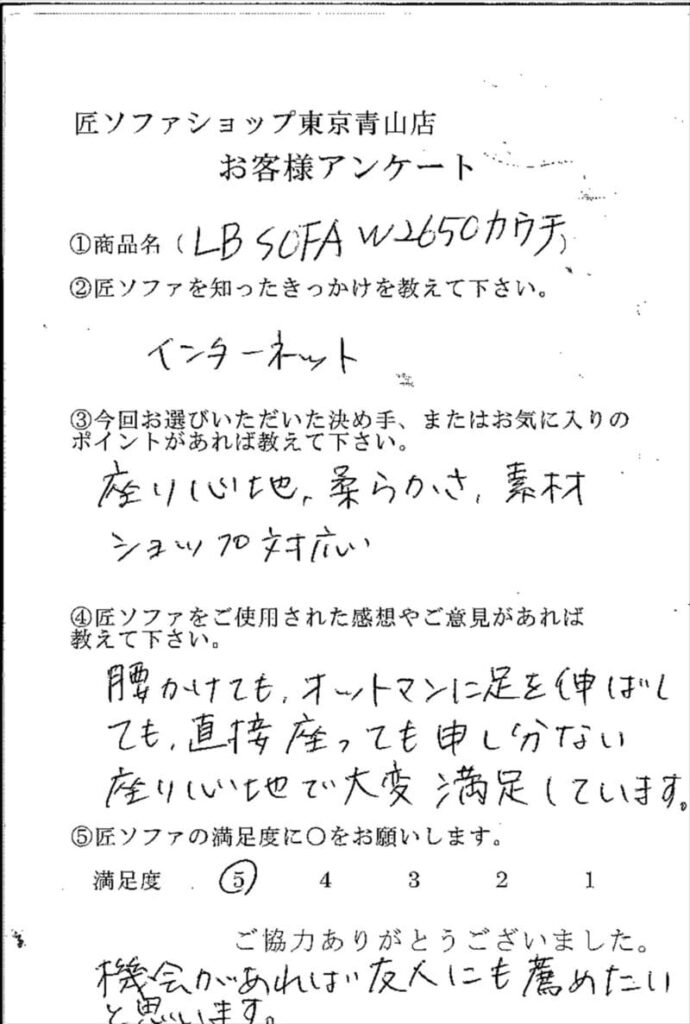 匠ソファショップ東京青山店
お客様アンケート
①商品名(LB SOFA W2650カウチ)
②匠ソファを知ったきっかけを教えて下さい。
インターネット
③今回お選びいただいた決め手、またはお気に入りの
ポイントがあれば教えて下さい。
座り心地、柔らかさ、素材
ショップ対応
④匠ソファをご使用された感想やご意見があれば
教えて下さい。
腰かけても、オットマンに足を伸ばし
ても、直接座っても申し分ない
座り心地で大変満足しています。
⑤匠ソファの満足度に〇をお願いします。
満足度 5 4 3 2 1
ご協力ありがとうございました。
機会があれば友人にも薦めたい
と思います。